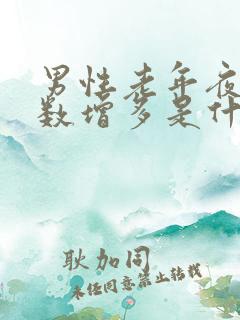 男性老年夜
数增多是什
耿加同
未经同意禁止转载